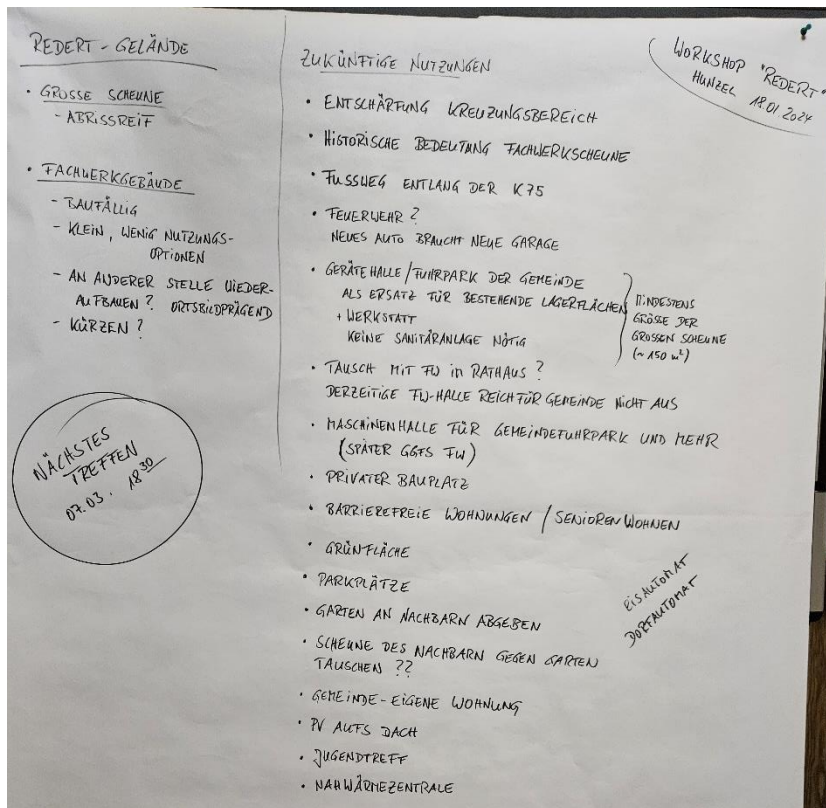 REDERT-GELÄNDE
• GROSSE SCHEUNE
- ABRISSREIF
• FACHWERKGEBÄUDE
- BAUFÄLLIG
- KLEIN, WENIG NUTZUNGS-
OPTIONEN
- AN ANDERER STELLE WIEDER-
AUFBAUEN? ORTSBILDPRÄGEND
- KÜRZEN?
NÄCHSTES
TREFFEN
07.03. 18³⁰
WORKSHOP "REDERT"
HUNZEL 18.01.2024
ZUKÜNFTIGE NUTZUNGEN
• ENTSCHÄRFUNG KREUZUNGSBEREICH
• HISTORISCHE BEDEUTUNG FACHWERKSCHEUNE
• FUSSWEG ENTLANG DER K75
• FEUERWEHR?
NEUES AUTO BRAUCHT NEUE GARAGE
• GERÄTEHALLE/FUHRPARK DER GEMEINDE
ALS ERSATZ FÜR BESTEHENDE LAGERFLÄCHEN
+ WERKSTATT
KEINE SANITÄRANLAGE NÖTIG
MINDESTENS
GRÖSSE DER
GROSSEN SCHEUNE
(~150 m²)
• TAUSCH MIT FW IN RATHAUS?
DERZEITIGE FW-HALLE REICH FÜR GEMEINDE NICHT AUS
• MASCHINENHALLE FÜR GEMEINDEFUHRPARK UND MEHR
(SPÄTER GGFS FW)
• PRIVATER BAUPLATZ
• BARRIEREFREIE WOHNUNGEN / SENIOREN WOHNEN
• GRÜNFLÄCHE
• PARKPLÄTZE
• GARTEN AN NACHBARN ABGEBEN
• SCHEUNE DES NACHBARN GEGEN GARTEN
TAUSCHEN ??
• GEMEINDE-EIGENE WOHNUNG
• PV AUFS DACH
• JUGENDTREFF
• NAHWÄRMEZENTRALE
EISAUTOMAT
DORFAUTOMAT